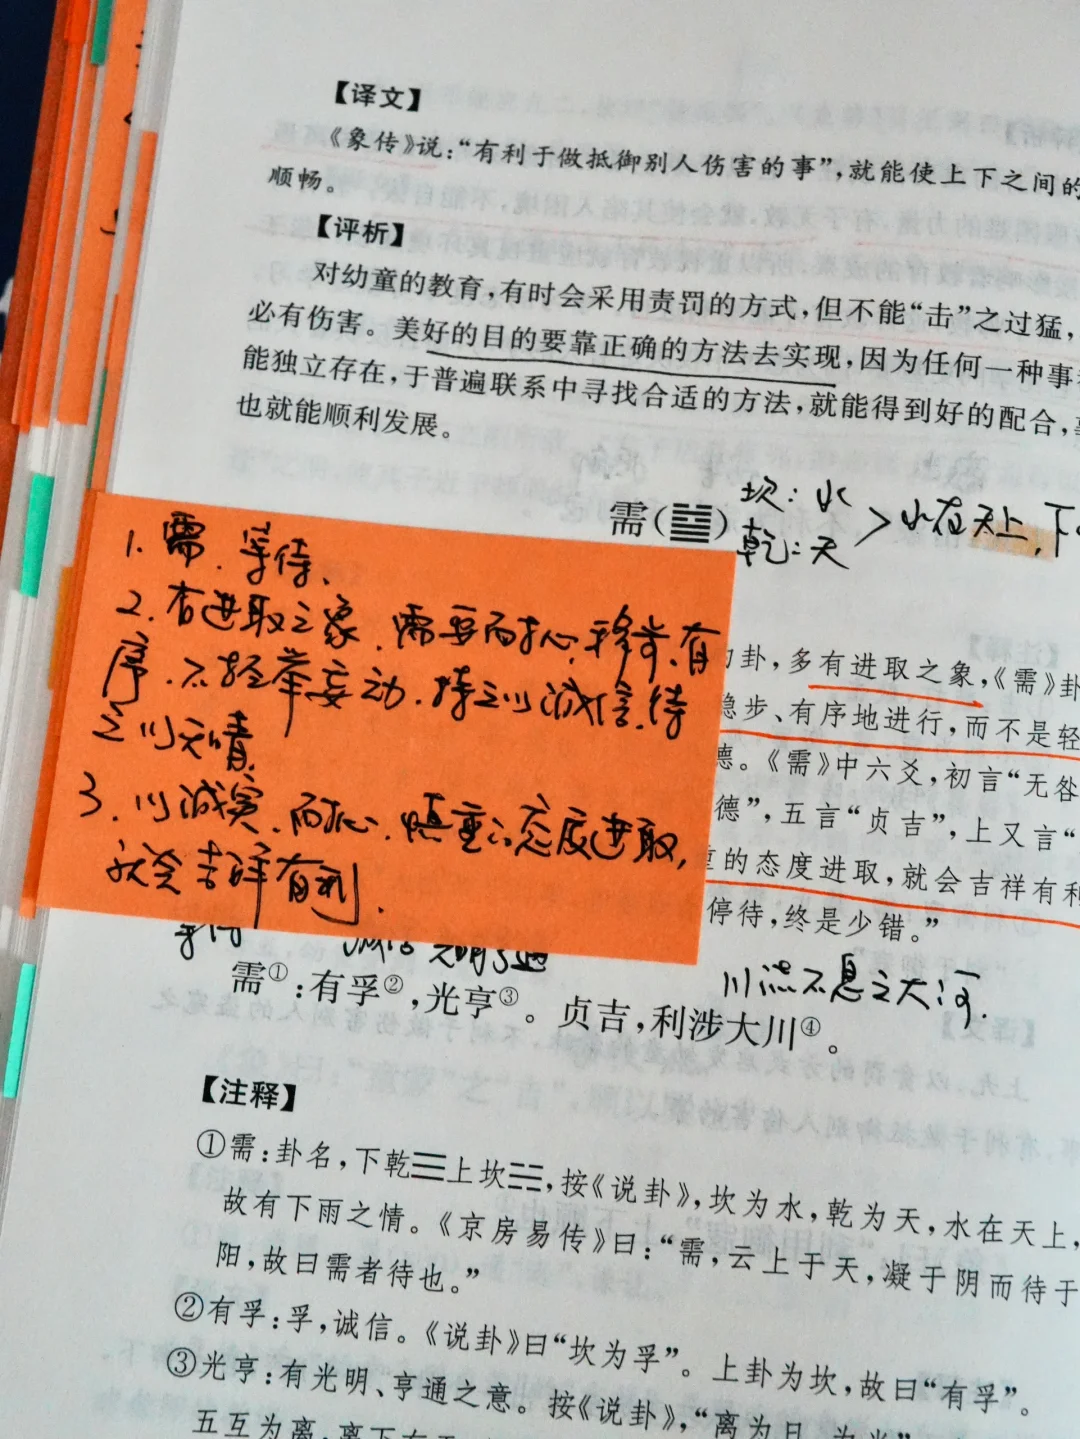 【译文】
《象传》说：“有利于做抵御别人伤害的事”，就能使上下之间的
顺畅。
【评析】
对幼童的教育，有时会采用责罚的方式，但不能“击”之过猛，
必有伤害。美好的目的要靠正确的方法去实现，因为任何一种事
能独立存在，于普遍联系中寻找合适的方法，就能得到好的配合，
也就能顺利发展。
需(䷄) 坎：水
乾：天 > 水在天上，下
1. 需、等待、
2. 有进取之象、需要耐心、稳步、有
序、不轻举妄动、持之以诚信、待
之以天晴
3. 以诚实、耐心、慎重的态度进取，
就会吉祥有利、
的卦，多有进取之象，《需》卦
稳步、有序地进行，而不是轻
德。《需》中六爻，初言“无咎
德”，五言“贞吉”，上又言“
重的态度进取，就会吉祥有利
停待，终是少错。”
等待 诚信 光明亨通
川流不息之大河.
需①：有孚②，光亨③。贞吉，利涉大川④。
【注释】
①需：卦名，下乾☰上坎☵，按《说卦》，坎为水，乾为天，水在天上，
故有下雨之情。《京房易传》曰：“需，云上于天，凝于阴而待于
阳，故曰需者待也。”
②有孚：孚，诚信。《说卦》曰“坎为孚”。上卦为坎，故曰“有孚”。
③光亨：有光明、亨通之意。按《说卦》，“离为日，为光”
五互为离，离下有